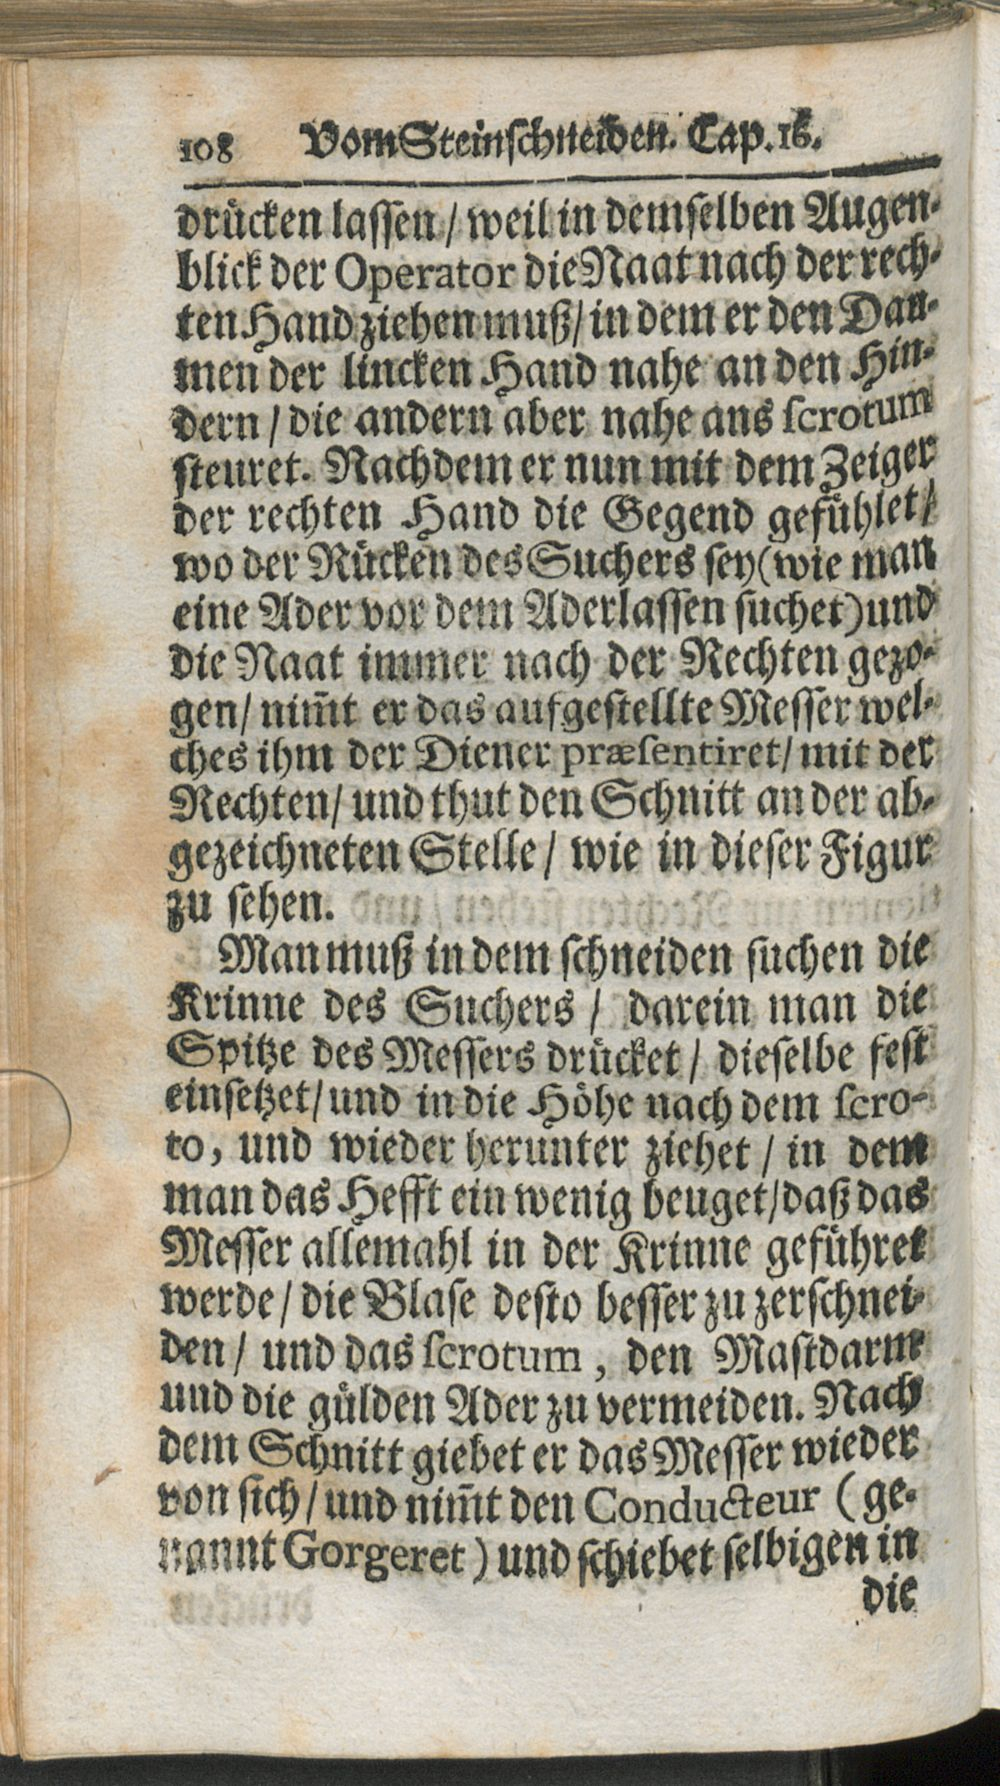 108 Vom Steinschneiden. Cap. 16.
drücken lassen / weil in demselben Augen-
blick der Operator die Naat nach der rech-
ten Hand ziehen muß / in dem er den Dau-
men der lincken Hand nahe an den Hin-
dern / die andern aber nahe ans scrotum
steuret. Nachdem er nun mit dem Zeiger
der rechten Hand die Gegend gefühlet /
wo der Rücken des Suchers sey (wie man
eine Ader vor dem Aderlassen suchet) und
die Naat immer nach der Rechten gezo-
gen / nim̃t er das aufgestellte Messer wel-
ches ihm der Diener præsentiret / mit der
Rechten / und thut den Schnitt an der ab-
gezeichneten Stelle / wie in dieser Figur
zu sehen.
Man muß in dem schneiden suchen die
Krinne des Suchers / darein man die
Spitze des Messers drücket / dieselbe fest
einsetzet / und in die Höhe nach dem scro-
to, und wieder herunter ziehet / in dem
man das Hefft ein wenig beuget / daß das
Messer allemahl in der Krinne geführet
werde / die Blase desto besser zu zerschnei-
den / und das scrotum, den Mastdarm
und die gülden Ader zu vermeiden. Nach
dem Schnitt giebet er das Messer wieder
von sich / und nim̃t den Conducteur (ge-
nannt Gorgeret) und schiebet selbigen in
die